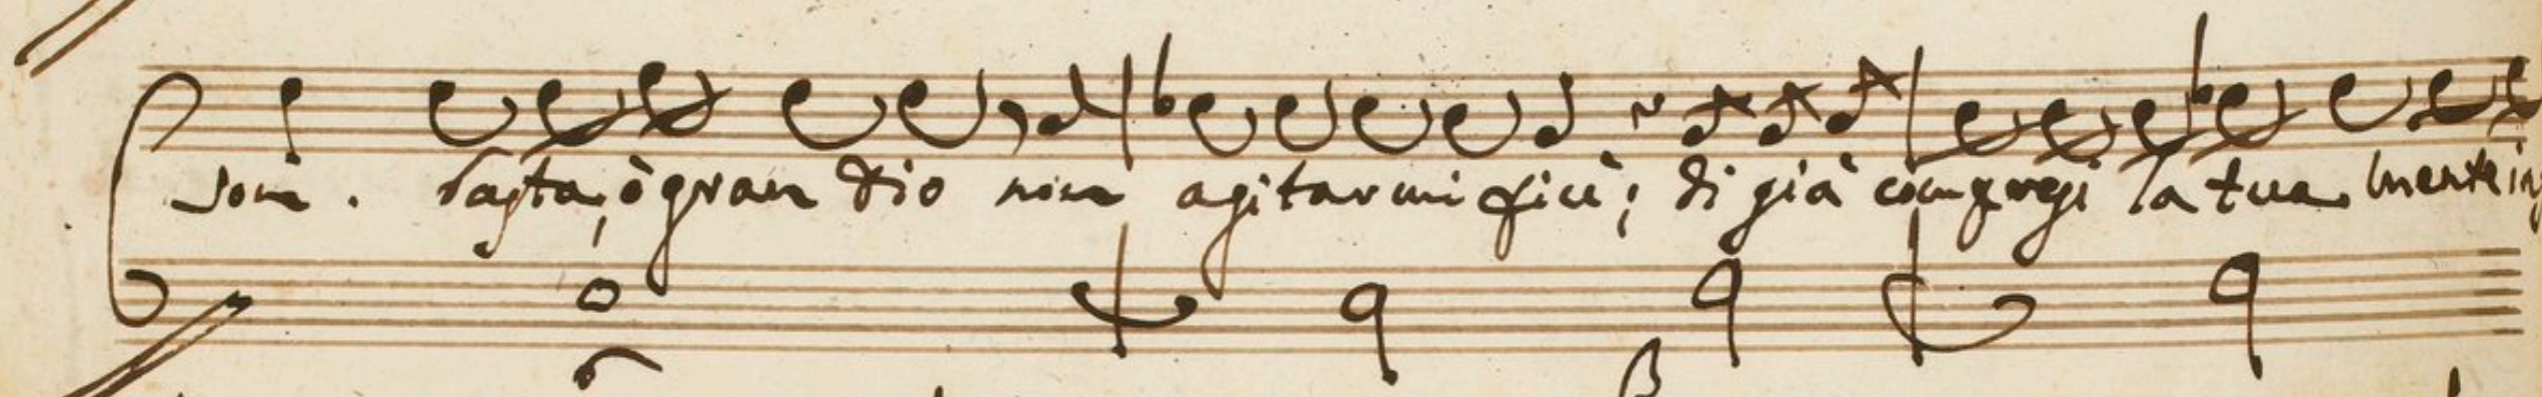 son. basta, ò gran Dio non agitarmi più; di già compresi la tua mente in